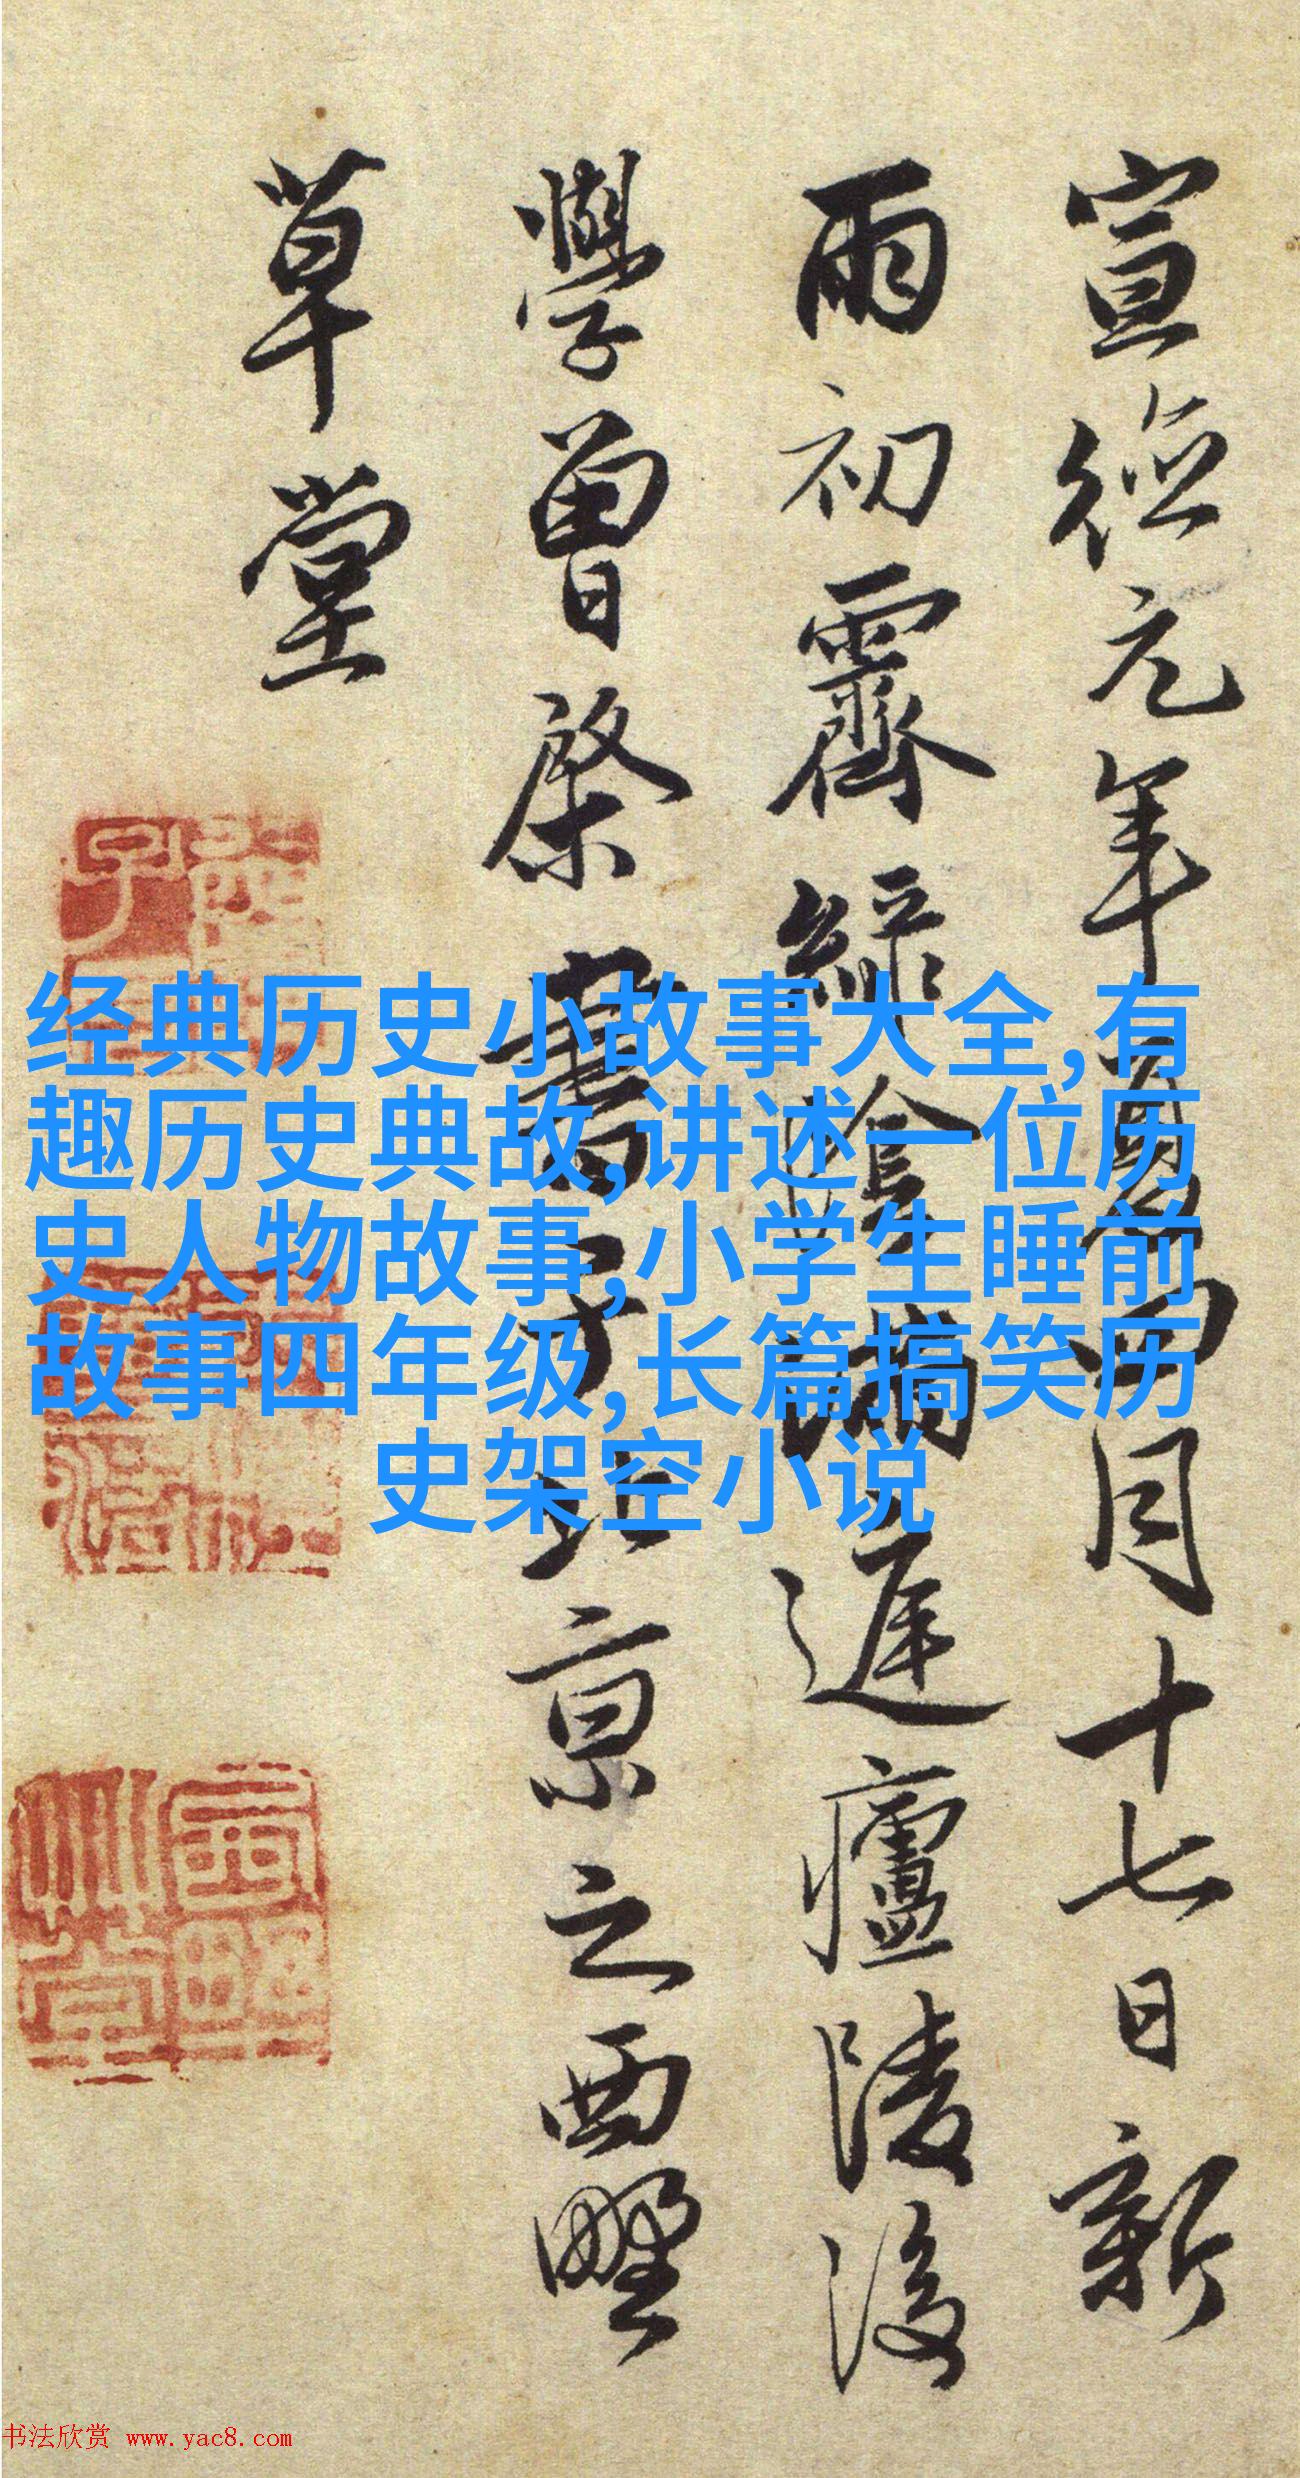 宣德元年夏四月十七日新
雨初霽綠陰滿庭廬陵後
學曾棨書于北京之西墅
草堂
经典历史小故事大全,有
趣历史典故,讲述一位历
史人物故事,小学生睡前
故事四年级,长篇搞笑历
史架空小说
书法欣赏 www.yac8.com